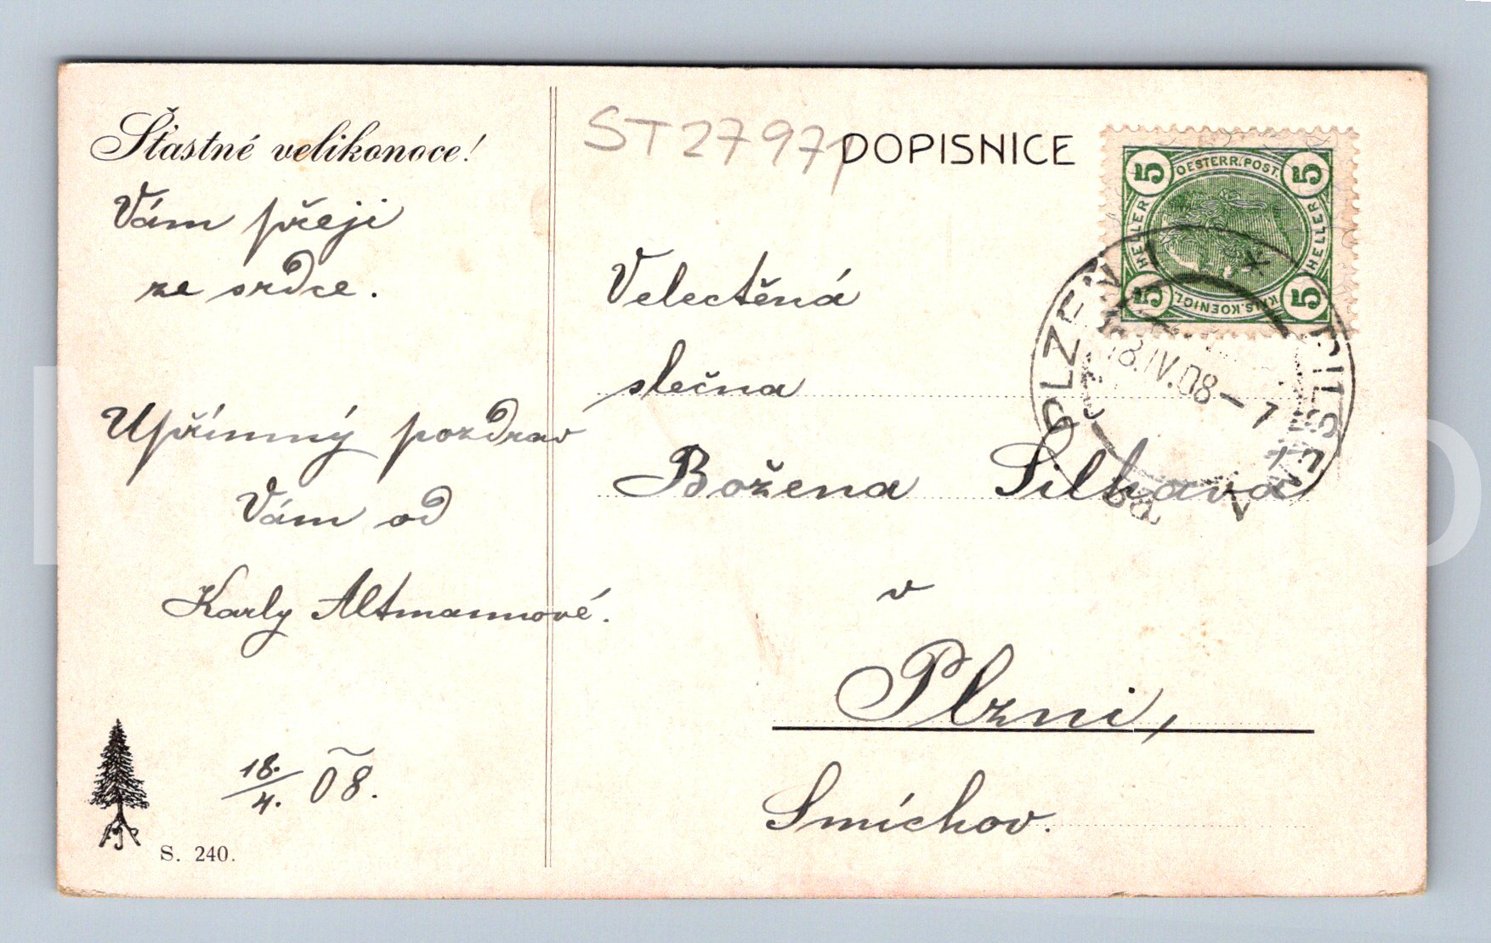 Šťastné velikonoce!
Vám přeji
ze srdce.
Upřímný pozdrav
Vám od
Karly Altmannové.
18./4. 08.
S. 240.
ST2797
DOPISNICE
5 OESTERR. POST. 5
HELLER HELLER
5 KAIS. KOENIGL. 5
PLZEŇ PILSEN
18.IV.08-7
Velectěná
slečna
Božena Silhavá
v
Plzni,
Smíchov.